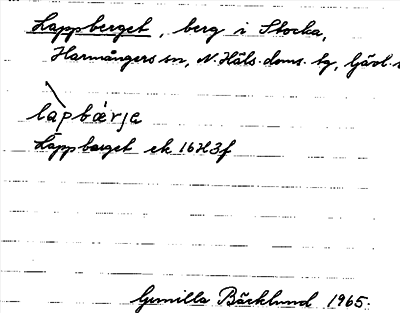 Lappberget, berg i Stocka,
Harmångers sn, N. Häls. doms. tg, Gävl.
lapbǽrjє
Lappbarget ek 16H3f
Gunilla Bäcklund 1965.